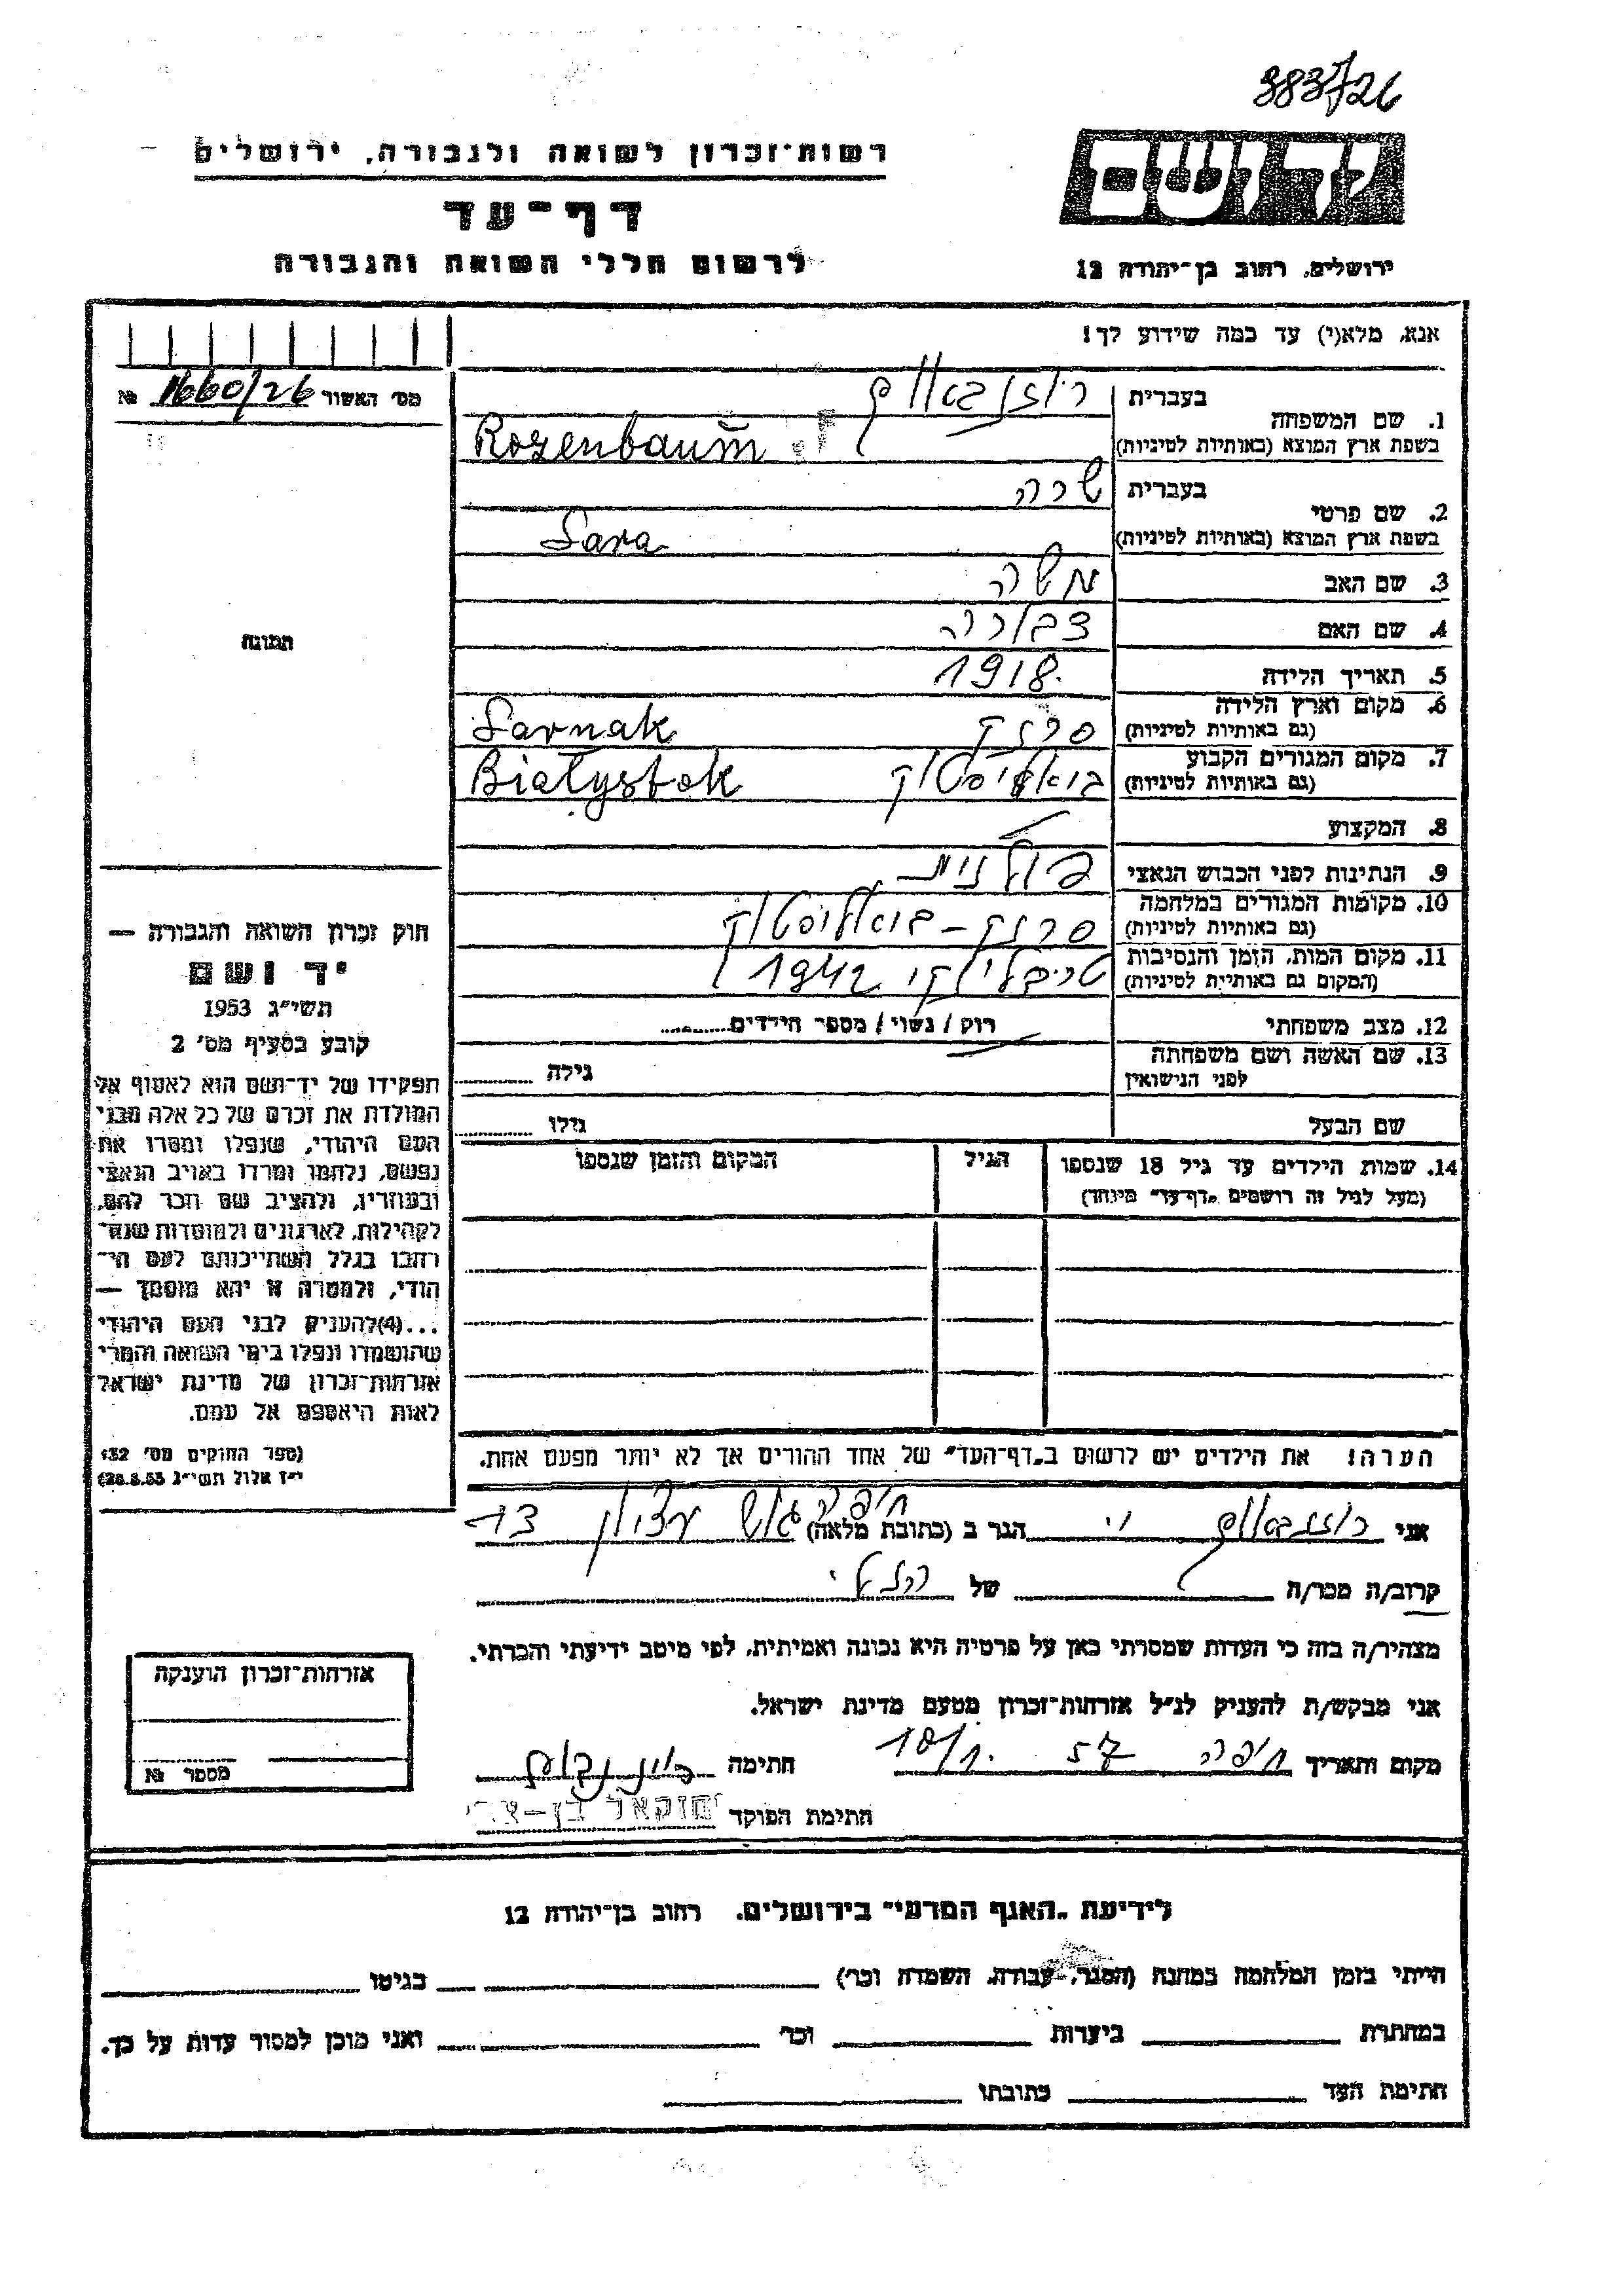 383/26
רשות־זכרון לשואה ולגבורה, ירושלים
דף־עד
לרשום חללי השואה והגבורה
יד ושם
ירושלים, רחוב בן־יהודה 12
אנא, מלא(י) עד כמה שידוע לך!
מס׳ האשור 1660/26 №
תמונה
1. שם המשפחה בעברית רוזנבאום
בשפת ארץ המוצא (באותיות לטיניות) Rozenbaum
2. שם פרטי בעברית שרה
בשפת ארץ המוצא (באותיות לטיניות) Sara
3. שם האב משה
4. שם האם צפורה
5. תאריך הלידה 1918
6. מקום וארץ הלידה
(גם באותיות לטיניות) סרנק Sarnak
7. מקום המגורים הקבוע
(גם באותיות לטיניות) ביאליסטוק Białystok
8. המקצוע
9. הנתינות לפני הכבוש הנאצי פולנית
10. מקומות המגורים במלחמה
(גם באותיות לטיניות) סרנק – ביאליסטוק
11. מקום המות, הזמן והנסיבות
(המקום גם באותיות לטיניות) 1942
12. מצב משפחתי רוק / נשוי / מספר הילדים
13. שם האשה ושם משפחתה
לפני הנישואין גילה
שם הבעל גילו
14. שמות הילדים עד גיל 18 שנספו הגיל המקום והזמן שנספו
(מעל לגיל זה רושמים „דף־עד״ מיוחד)
הערה! את הילדים יש לרשום ב„דף־העד״ של אחד ההורים אך לא יותר מפעם אחת.
חוק זכרון השואה והגבורה —
יד ושם
תשי״ג 1953
קובע בסעיף מס׳ 2
תפקידו של יד־ושם הוא לאסוף אל
המולדת את זכרם של כל אלה מבני
העם היהודי, שנפלו ומסרו את
נפשם, נלחמו ומרדו באויב הנאצי
ובעוזריו, ולהציב שם וזכר להם,
לקהילות, לארגונים ולמוסדות שנח־
רבו בגלל השתייכותם לעם הי־
הודי, ולמטרה זו יהא מוסמך —
...(4)להעניק לבני העם היהודי
שהושמדו ונפלו בימי השואה והמרי
אזרחות־זכרון של מדינת ישראל
לאות היאספם אל עמם.
(ספר החוקים מס׳ 132
י״ז אלול תשי״ג 28.8.53)
אני רוזנבאום הגר ב (כתובת מלאה) חיפה
קרוב/ה מכר/ה של
מצהיר/ה בזה כי העדות שמסרתי כאן על פרטיה היא נכונה ואמיתית, לפי מיטב ידיעתי והכרתי.
אני מבקש/ת להעניק לנ״ל אזרחות־זכרון מטעם מדינת ישראל.
מקום ותאריך חיפה 57 חתימה
חתימת הפוקד
אזרחות־זכרון הוענקה
מספר №
לידיעת „האגף המדעי״ בירושלים, רחוב בן־יהודה 12
הייתי בזמן המלחמה במחנה (הסגר, עבודה, השמדה וכר׳) בגיטו
במחתרת ביערות וכר׳ ואני מוכן למסור עדות על כך.
חתימת העד כתובתו